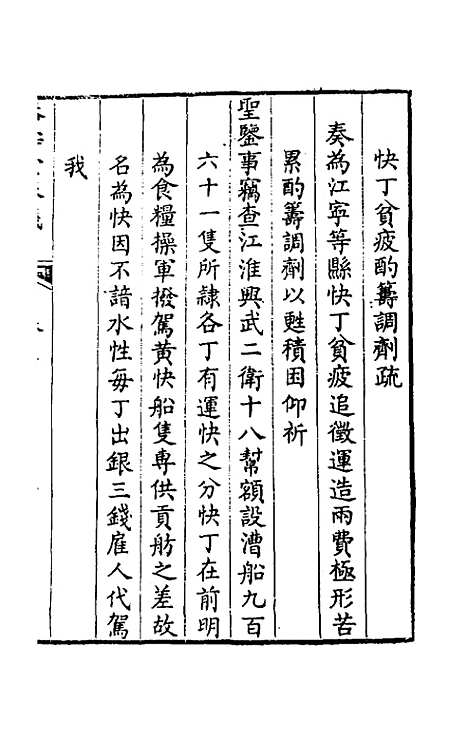 快丁貧疲酌籌調劑疏
奏為江寧等縣快丁貧疲追徵運造兩費極形苦
累酌籌調劑以甦積困仰祈
聖鑒事竊查江淮興武二衛十八幫額設漕船九百
六十一隻所隸各丁有運快之分快丁在前明
為食糧操軍撥駕黃快船隻専供貢舫之差故
名為快因不諳水性每丁出銀三錢雇人代駕
我